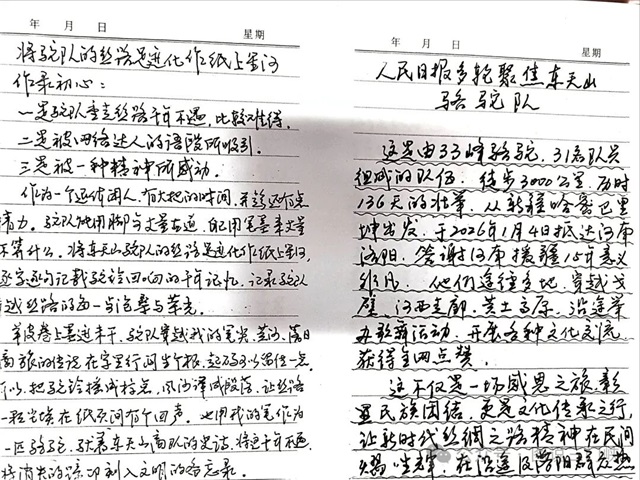 年 月 日 星期
将驼队的丝路足迹化作纸上星河
作录初心：
一是驼队重走丝路千年不遇，比较难得，
二是被网络达人的语段所吸引。
三是被一种精神所感动。
作为一个退休闲人，有大把的时间，并
精力。驼队他用脚步丈量古道，我用笔墨来丈量
不算什么，将东天山驼队的丝路足迹化作纸上星河，
逐字逐句记载驼铃回响的千年记忆，记录驼队
越丝路的每一步沧桑与荣光
羊皮卷上墨迹未干，驼队穿越我的笔尖，黄沙、落日
商旅的传说在字里行间生根，
以，把驼铃拴成标点，风沙译成段落，让丝路
一粒尘埃在纸页间有个回声。也用我的笔作为
一匹骆驼，驮着东天山商队的史诗，将这千年不遇
将消失的刻入文明的备忘录。
年 月 日 星期
人民日报多轮聚焦东天山
骆驼队
这是由33峰骆驼、31名队员
组成的队伍，徒步3000公里，历时
136天的壮举，从新疆哈密巴里
坤出发，于2026年1月4日抵达河南
洛阳，答谢河南援疆15年来义
他们途径多地，穿越戈
壁、河西走廊、黄土高原，沿途举
办歌舞活动，开展各种文化交流，
获得全网点赞。
这不仅是一场感恩之旅，彰
显民族团结，更是文化传承之行，
让新时代丝绸之路精神在民间
，在沿途及洛阳群众热